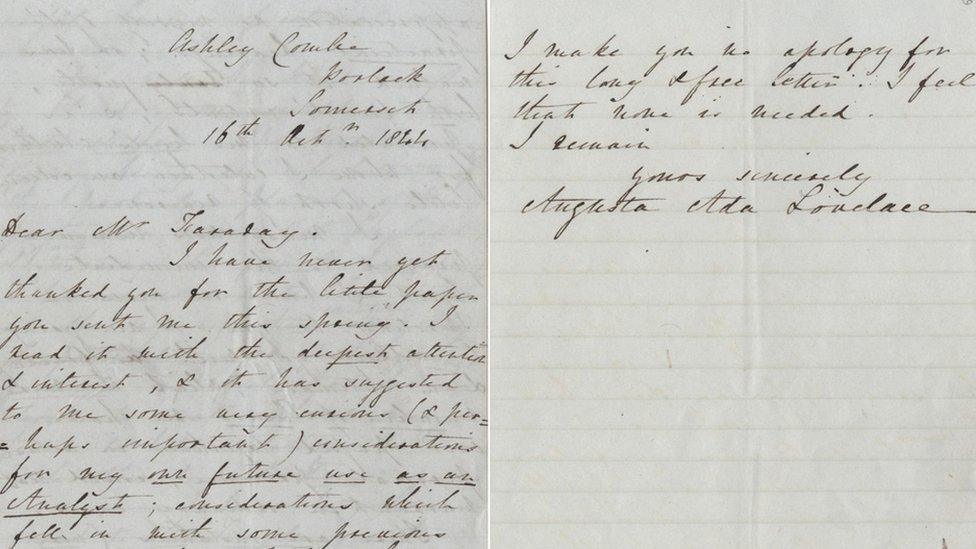 Ashley Combe
Porlock
Somerset
16th Octr. 1844
Dear Mr Faraday.
I have never yet
thanked you for the little paper
you sent me this spring. I
read it with the deepest attention
& interest, & it has suggested
to me some very curious (& per=
=haps important) considerations
for my own future use as an
Analyst; considerations which
fell in with some previous
I make you no apology for
this long & free letter. I feel
that none is needed.
I remain
yours sincerely
Augusta Ada Lovelace